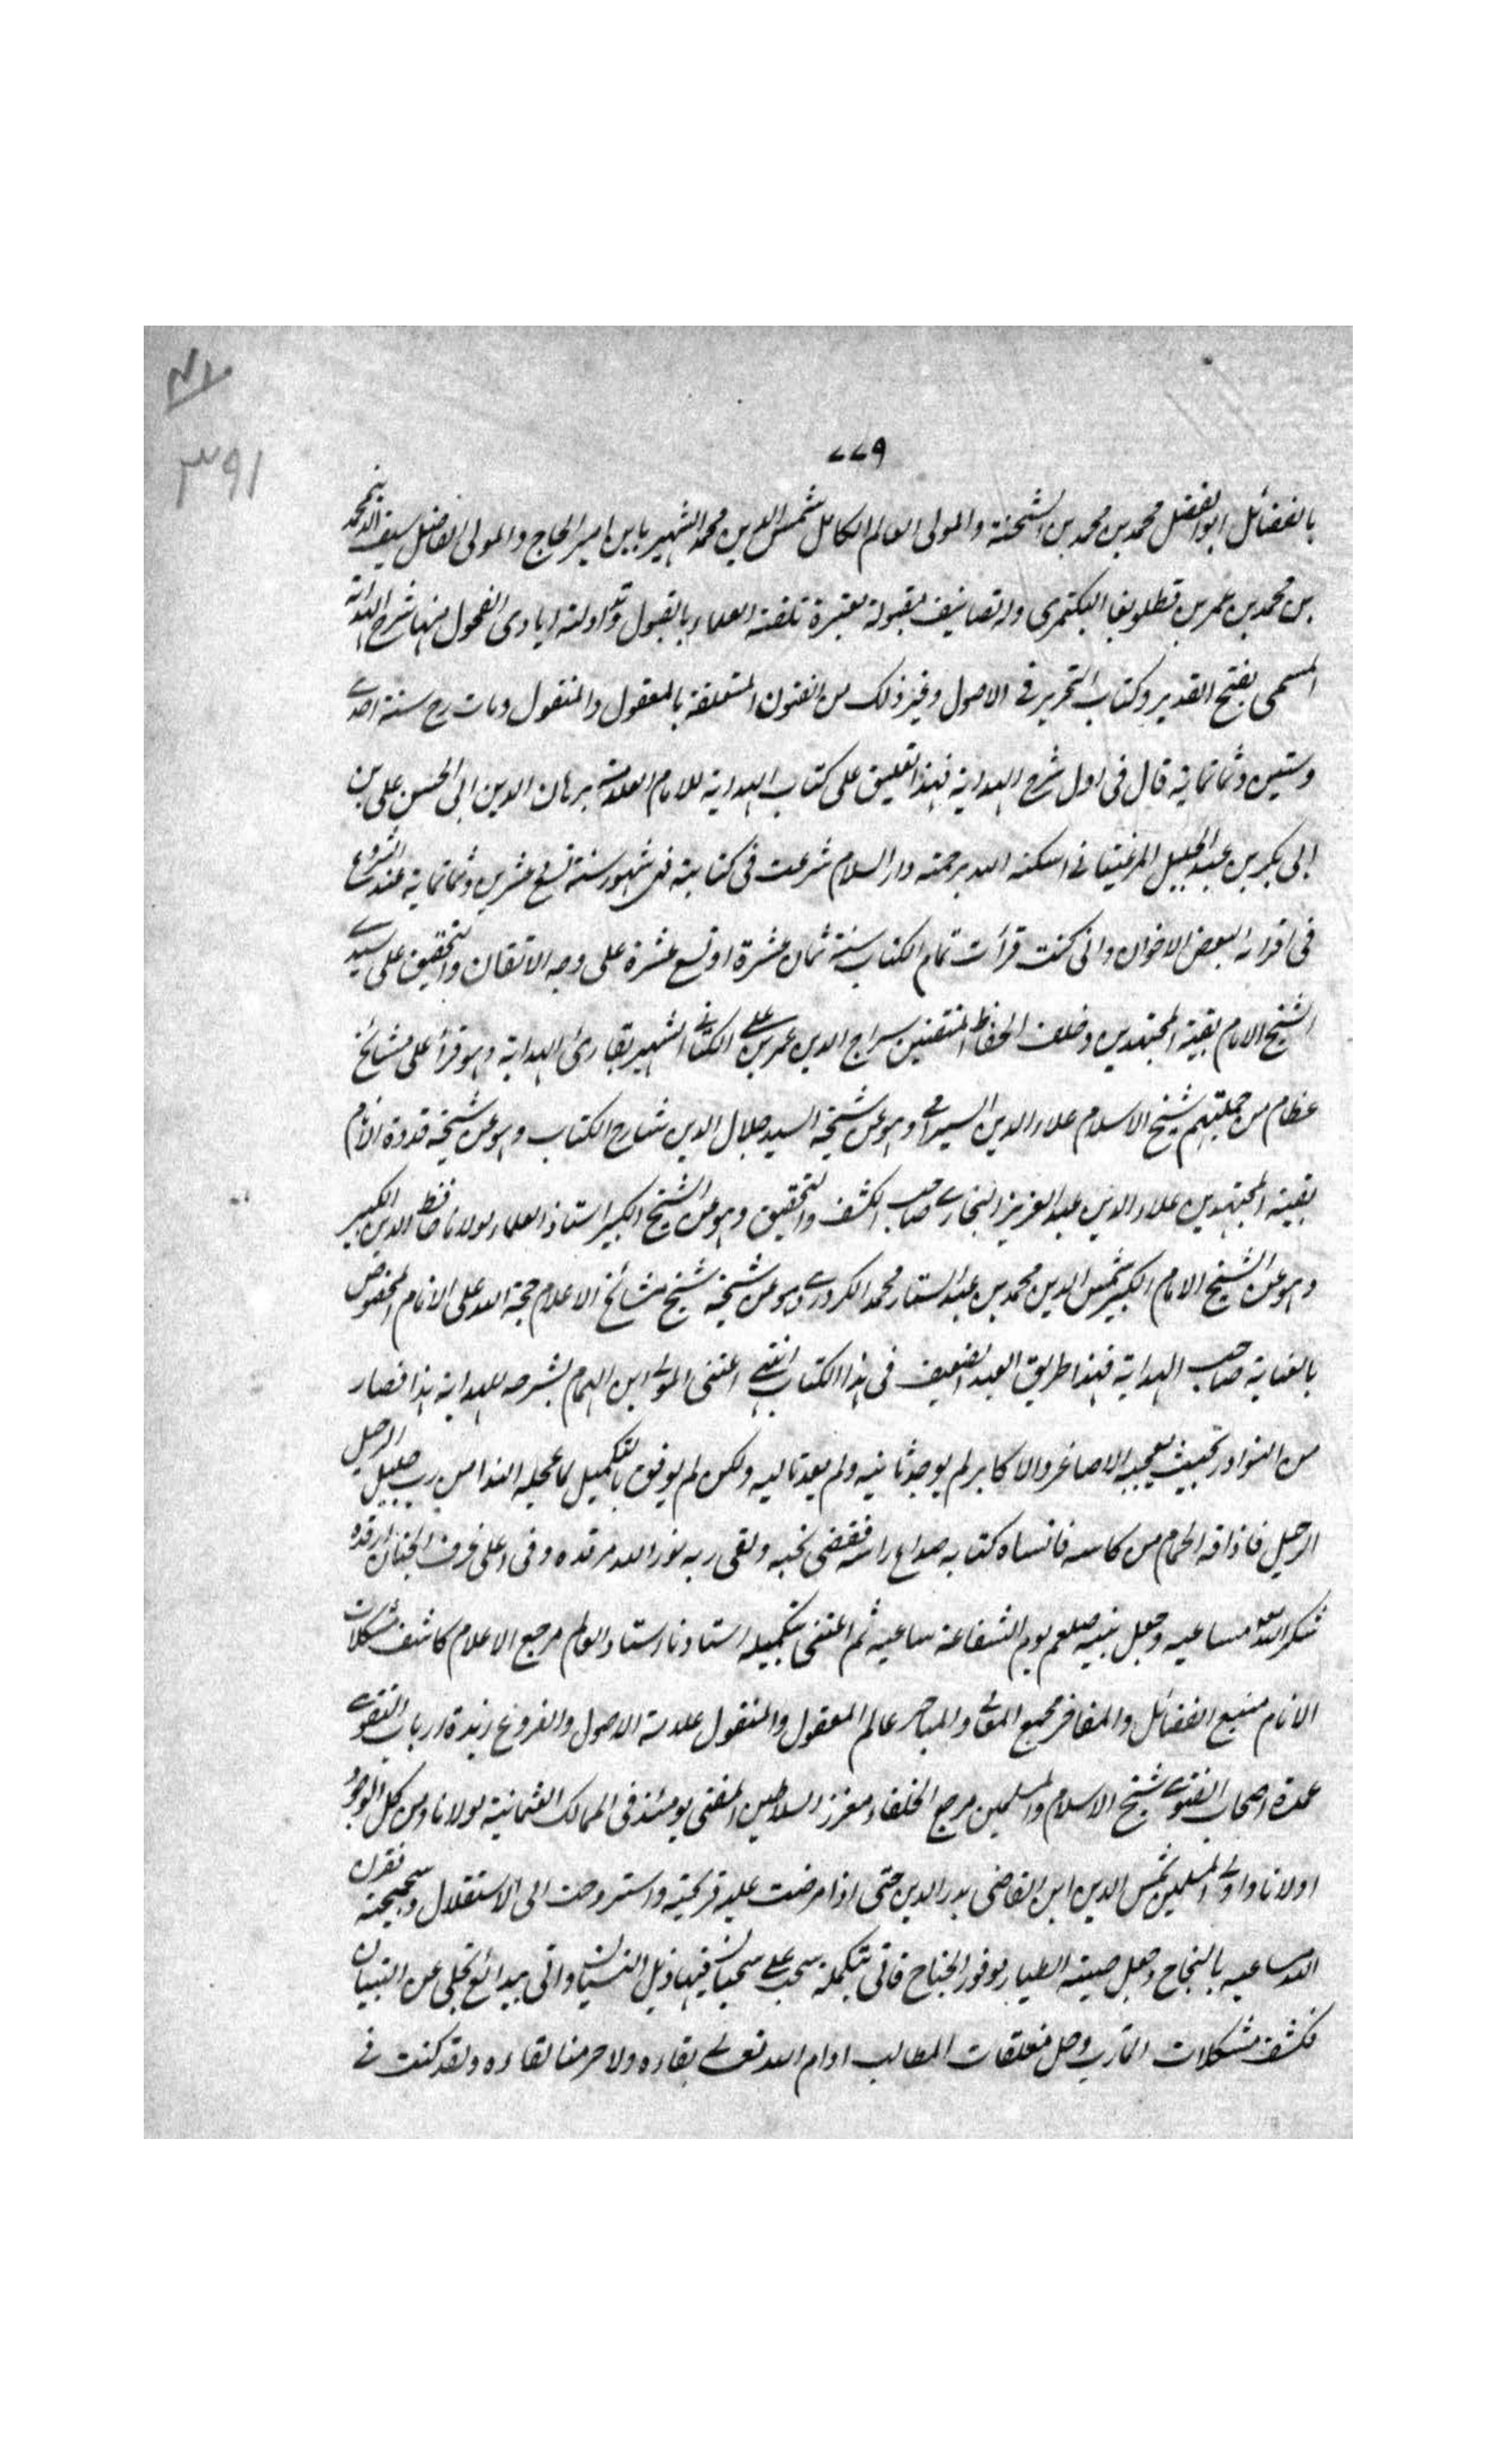 ٣٩١
٧٧٩
بالفضائل ابو الفضل محمد بن محمد بن الشحنة والمولى العالم الكامل شمس الدين محمد الشهير بابن امير الحاج والمولى الفاضل سيف الدين محمد
بن محمد بن عمر بن قطلوبغا البكتمرى وله تصانيف مقبولة معتبرة تلقته العلماء بالقبول وتداولته ايادى الفحول منها شرح الهداية
المسمى بفتح القدير وكتاب التحرير فى الاصول وغير ذلك من الفنون المتعلقة بالمعقول والمنقول ومات رح سنة احدى
وستين وثمانماية قال فى اول شرح الهداية فهذا تعليق على كتاب الهداية للامام العلامة برهان الدين ابى الحسن على بن
ابى بكر بن عبد الجليل المرغينانى اسكنه الله برحمته دار السلام شرعت فى كتابته فى شهور سنة تسع عشرين وثمانماية عند الشروع
فى اقرائه لبعض الاخوان وانى كنت قرأت تمام الكتاب سنة ثمان عشرة او تسع عشرة على وجه الاتقان والتحقيق على سيدى
الشيخ الامام بقية المجتهدين وخلف الحفاظ المتقنين سراج الدين عمر بن على الكنانى الشهير بقارئ الهداية وهو قرأ على مشائخ
عظام من جملتهم شيخ الاسلام علاء الدين السيرامى وهو عن شيخه السيد جلال الدين شارح الكتاب وهو عن شيخه قدوة الانام
بقية المجتهدين علاء الدين عبد العزيز البخارى صاحب الكشف والتحقيق وهو عن الشيخ الكبير استاذ العلماء مولانا حافظ الدين الكبير
وهو عن الشيخ الامام الكبير شمس الدين محمد بن عبد الستار محمد الكردرى وهو عن شيخه شيخ مشائخ الاعلام حجة الله على الانام المخصوص
بالعناية صاحب الهداية فهذا طريق العبد الضعيف فى هذا الكتاب انتهى اعتنى المولى ابن الهمام بشرحه للهداية هذا فصار
من النوادر بحيث يعجبه الاصاغر والاكابر لم يوجد ثانيه ولم يعد تاليه ولكن لم يوفق بالتكميل لما عجله الندا من رب جليل الرحيل
الرحيل فاذاقه الحمام من كاسه فانساه كتابه صداع راسه فقضى نحبه ولقى ربه نور الله مرقده وفى اعلى غرف الجنان ارقده
شكر الله مساعيه وجعل نبيه صلعم يوم الشفاعة ساعيه ثم اعتنى بتكميله استاذنا استاد العالم مرجع الاعلام كاشف مشكلات
الانام منبع الفضائل والمفاخر مجمع المعالى والمباصر عالم المعقول والمنقول علامة الاصول والفروع زبدة ارباب التقوى
عمدة اصحاب الفتوى شيخ الاسلام والمسلمين مرجع الخلفاء معزز السلاطين المفتى يومئذ فى الممالك العثمانية مولانا ومن كل الوجوه
اولانا واولى المسلمين شمس الدين ابن القاضى بدر الدين حتى اذا مرضت عليه قريحته واستروحت الى الاستقلال وسجيحته قرن
الله مساعيه بالنجاح وجعل صيته الطيار بوفور الجناح فاتى بتكملة سحب على سحبان فيها ذيل النسيان واتى ببدائع تجلى عن التبيان
فكشف مشكلات المآرب وحل مغلقات المطالب ادام الله تعالى بقاءه ولا حرمنا لقاءه ولقد كنت فى